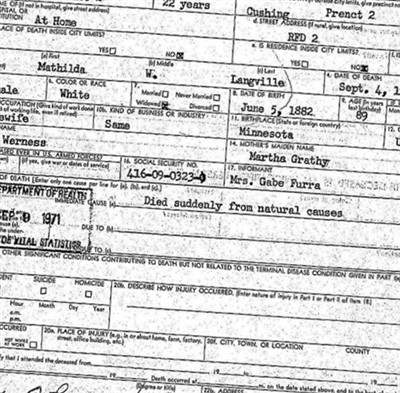 OF (If not in hospital, give street address)
22 years
Cushing Prenct 2
At Home
d. STREET ADDRESS (If rural, give location)
RFD 2
PLACE OF DEATH INSIDE CITY LIMITS?
YES NO
e. IS RESIDENCE INSIDE CITY LIMITS?
YES NO
(a) First (b) Middle (c) Last 4. DATE OF DEATH
Mathilda W. Langville Sept. 4,
6. COLOR OR RACE 7. Married Never Married 8. DATE OF BIRTH
White Widowed Divorced June 5, 1882 89
10b. KIND OF BUSINESS OR INDUSTRY 11. BIRTHPLACE (State or foreign country)
Same Minnesota
14. MOTHER'S MAIDEN NAME
Werness Martha Grathy
16. SOCIAL SECURITY NO. 17. INFORMANT
416-09-0323-0 Mrs. Gabe Furra
OF DEATH (Enter only one cause per line for (a), (b), and (c).)
DEPARTMENT OF HEALTH
Died suddenly from natural causes
SEP 9 1971
DUE TO (b)
VITAL STATISTICS
DUE TO (c)
OTHER SIGNIFICANT CONDITIONS CONTRIBUTING TO DEATH BUT NOT RELATED TO THE TERMINAL DISEASE CONDITION GIVEN IN PART
SUICIDE HOMICIDE 20b. DESCRIBE HOW INJURY OCCURRED. (Enter nature of injury in Part I or Part II of item 18.)
Hour Month Day Year
a.m.
p.m.
OCCURRED 20e. PLACE OF INJURY (e.g., in or about home, farm, factory, street, office building, etc.) 20f. CITY, TOWN, OR LOCATION COUNTY
NOT WHILE AT WORK
that I attended the deceased from 19 to 19
Death occurred at m. on the date stated above, and to the
(Degree or title) 22b. ADDRESS